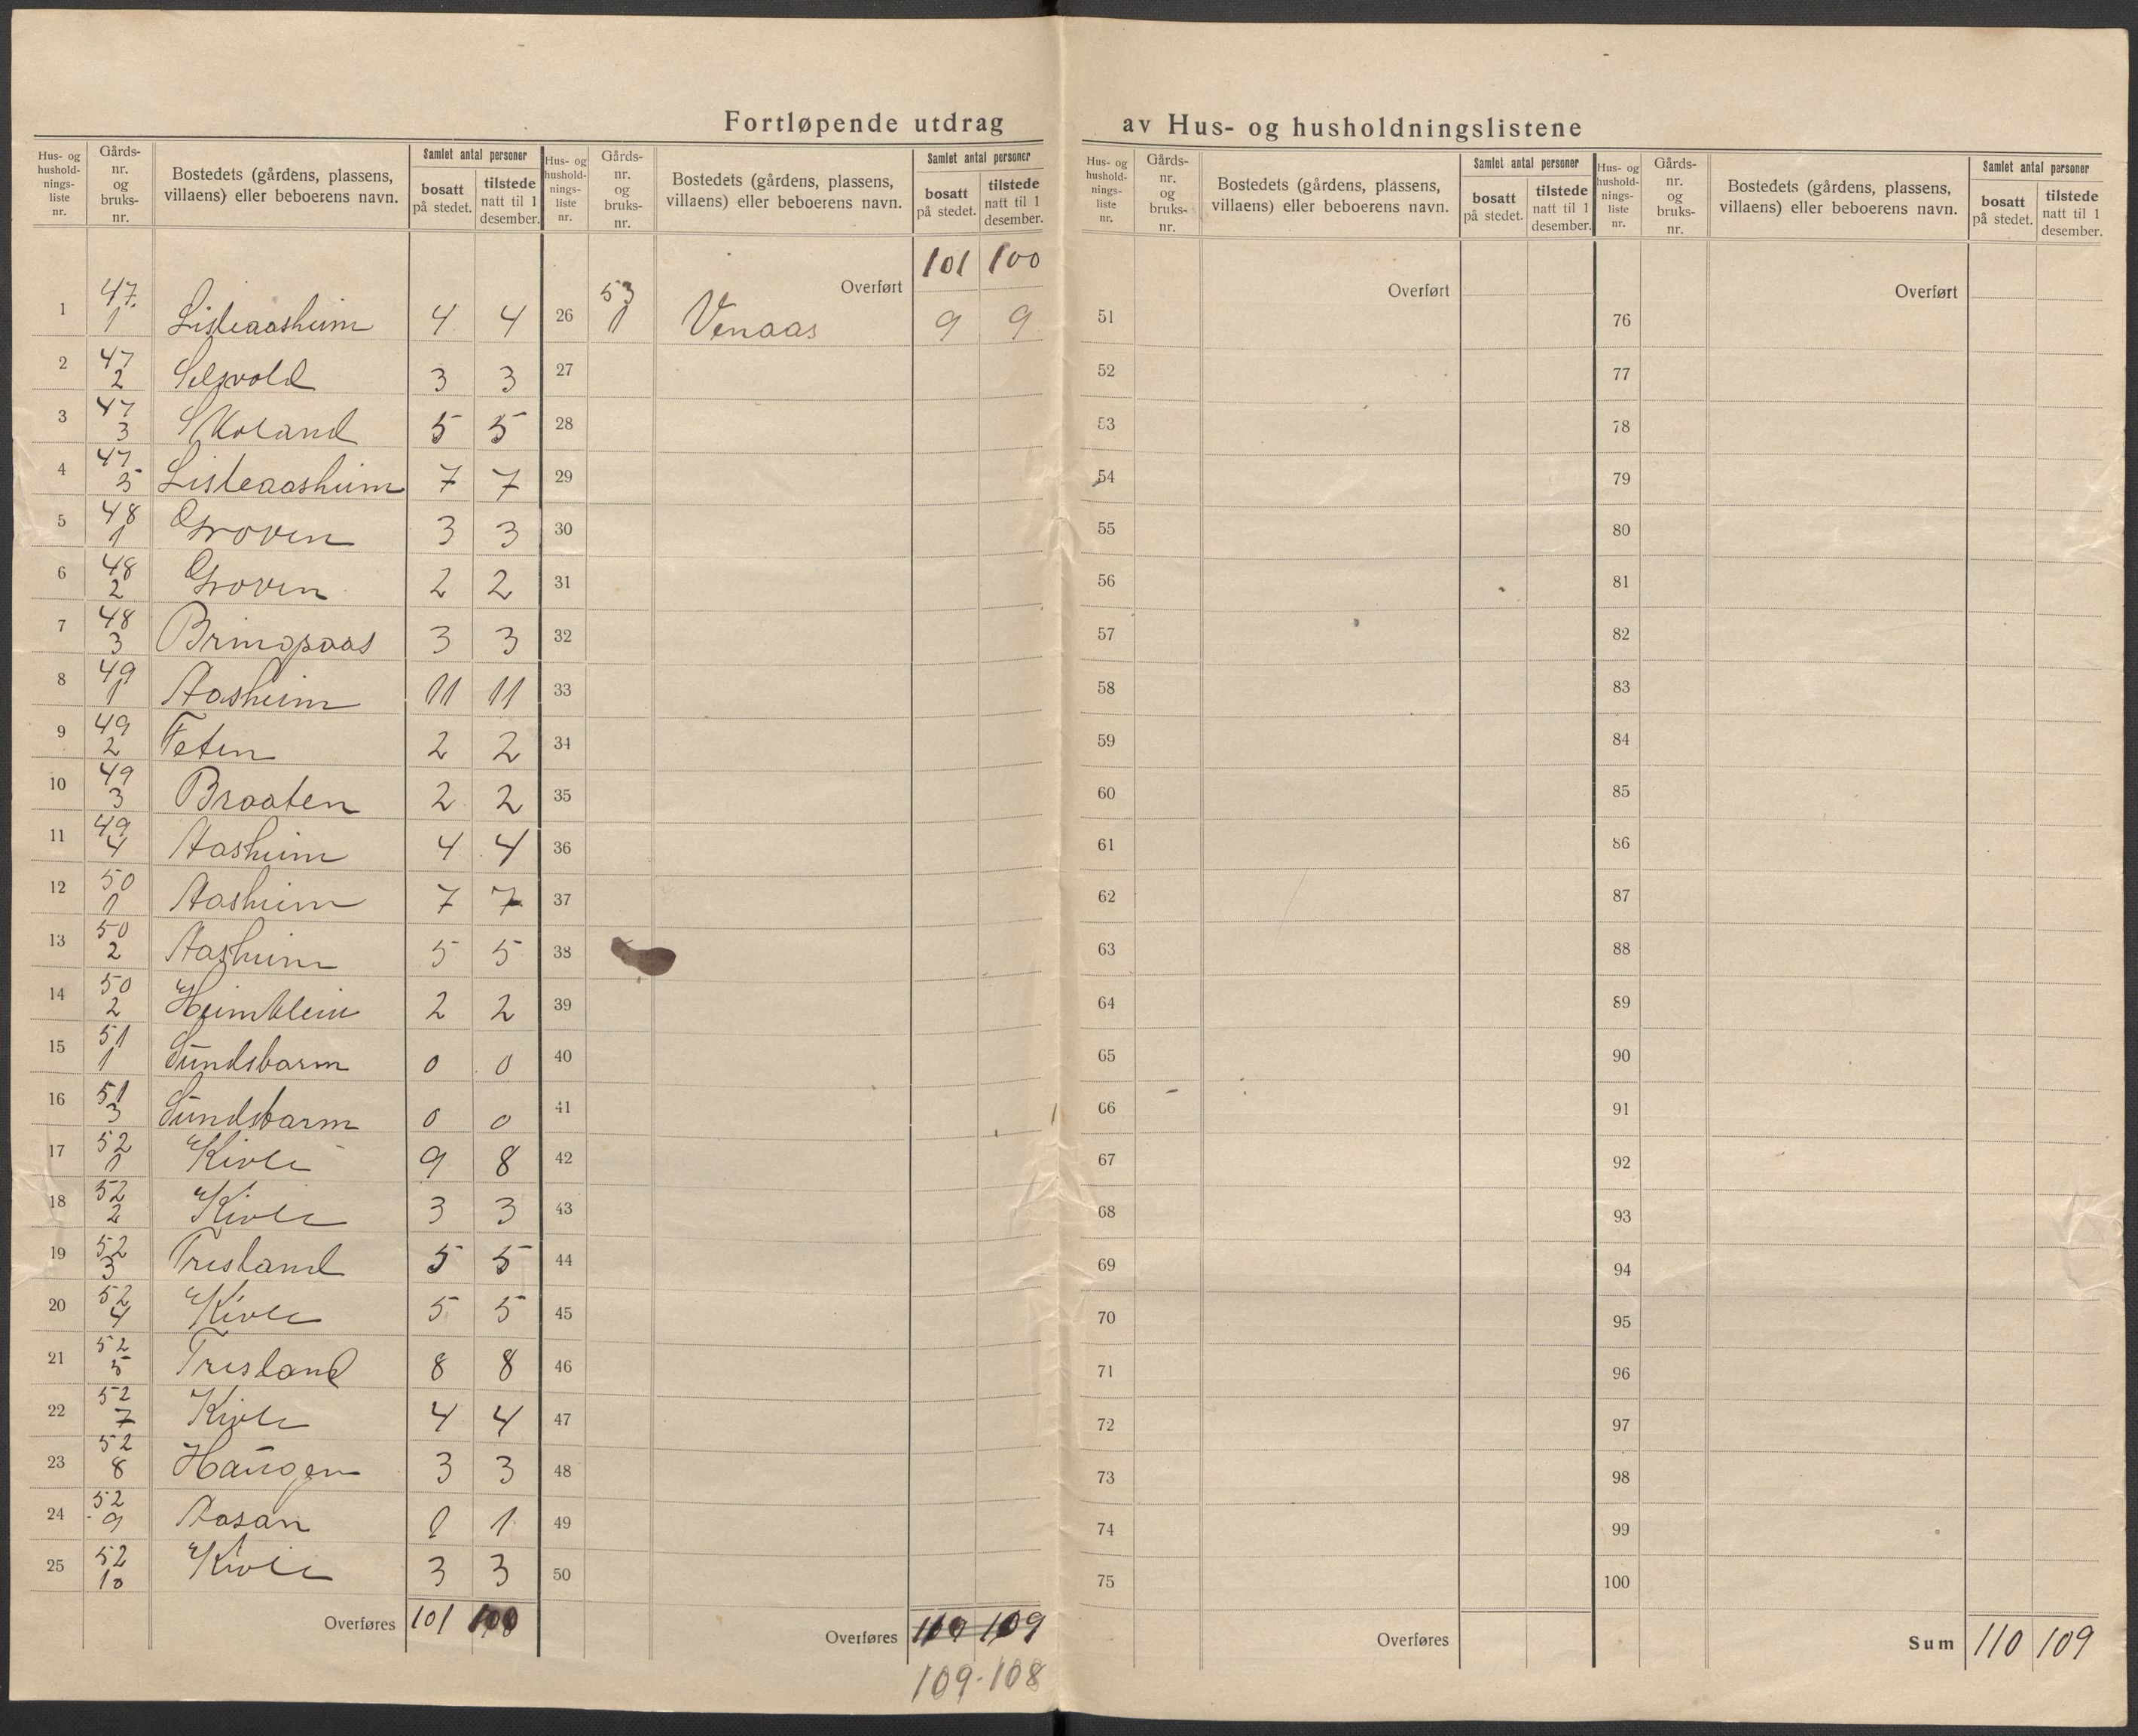 Fortløpende utdrag av Hus- og husholdningslistene
Hus- og hushold- nings- liste nr. | Gårds- nr. og bruks- nr. | Bostedets (gårdens, plassens, villaens) eller beboerens navn. | Samlet antal personer | bosatt på stedet. | tilstede natt til 1 desember.
1 47. 1 Listeaasheim 4 4
2 47 2 Selsvold 3 3
3 47 3 Moland 5 5
4 47 5 Listeaasheim 7 7
5 48 1 Groven 3 3
6 48 2 Groven 2 2
7 48 3 Bringsaas 3 3
8 49 1 Aasheim 11 11
9 49 2 Feten 2 2
10 49 3 Braaten 2 2
11 49 4 Aasheim 4 4
12 50 1 Aasheim 7 7
13 50 2 Aasheim 5 5
14 50 2 2 2
15 51 1 Sundsbarm 0 0
16 51 3 Sundsbarm 0 0
17 52 1 Kivle 9 8
18 52 2 Kivle 3 3
19 52 3 Trisland 5 5
20 52 4 Kivle 5 5
21 52 5 Trisland 8 8
22 52 7 Kivle 4 4
23 52 8 Haugen 3 3
24 52 9 Aasan 1
25 52 10 Kivle 3 3
Overføres 101 100
Hus- og hushold- nings- liste nr. | Gårds- nr. og bruks- nr. | Bostedets (gårdens, plassens, villaens) eller beboerens navn. | Samlet antal personer | bosatt på stedet. | tilstede natt til 1 desember.
Overført 101 100
26 53 1 Venaas 9 9
27
28
29
30
31
32
33
34
35
36
37
38
39
40
41
42
43
44
45
46
47
48
49
50
Overføres 110 109
109-108
Hus- og hushold- nings- liste nr. | Gårds- nr. og bruks- nr. | Bostedets (gårdens, plassens, villaens) eller beboerens navn. | Samlet antal personer | bosatt på stedet. | tilstede natt til 1 desember.
Overført
51
52
53
54
55
56
57
58
59
60
61
62
63
64
65
66
67
68
69
70
71
72
73
74
75
Overføres
Hus- og hushold- nings- liste nr. | Gårds- nr. og bruks- nr. | Bostedets (gårdens, plassens, villaens) eller beboerens navn. | Samlet antal personer | bosatt på stedet. | tilstede natt til 1 desember.
Overført
76
77
78
79
80
81
82
83
84
85
86
87
88
89
90
91
92
93
94
95
96
97
98
99
100
Sum 110 109